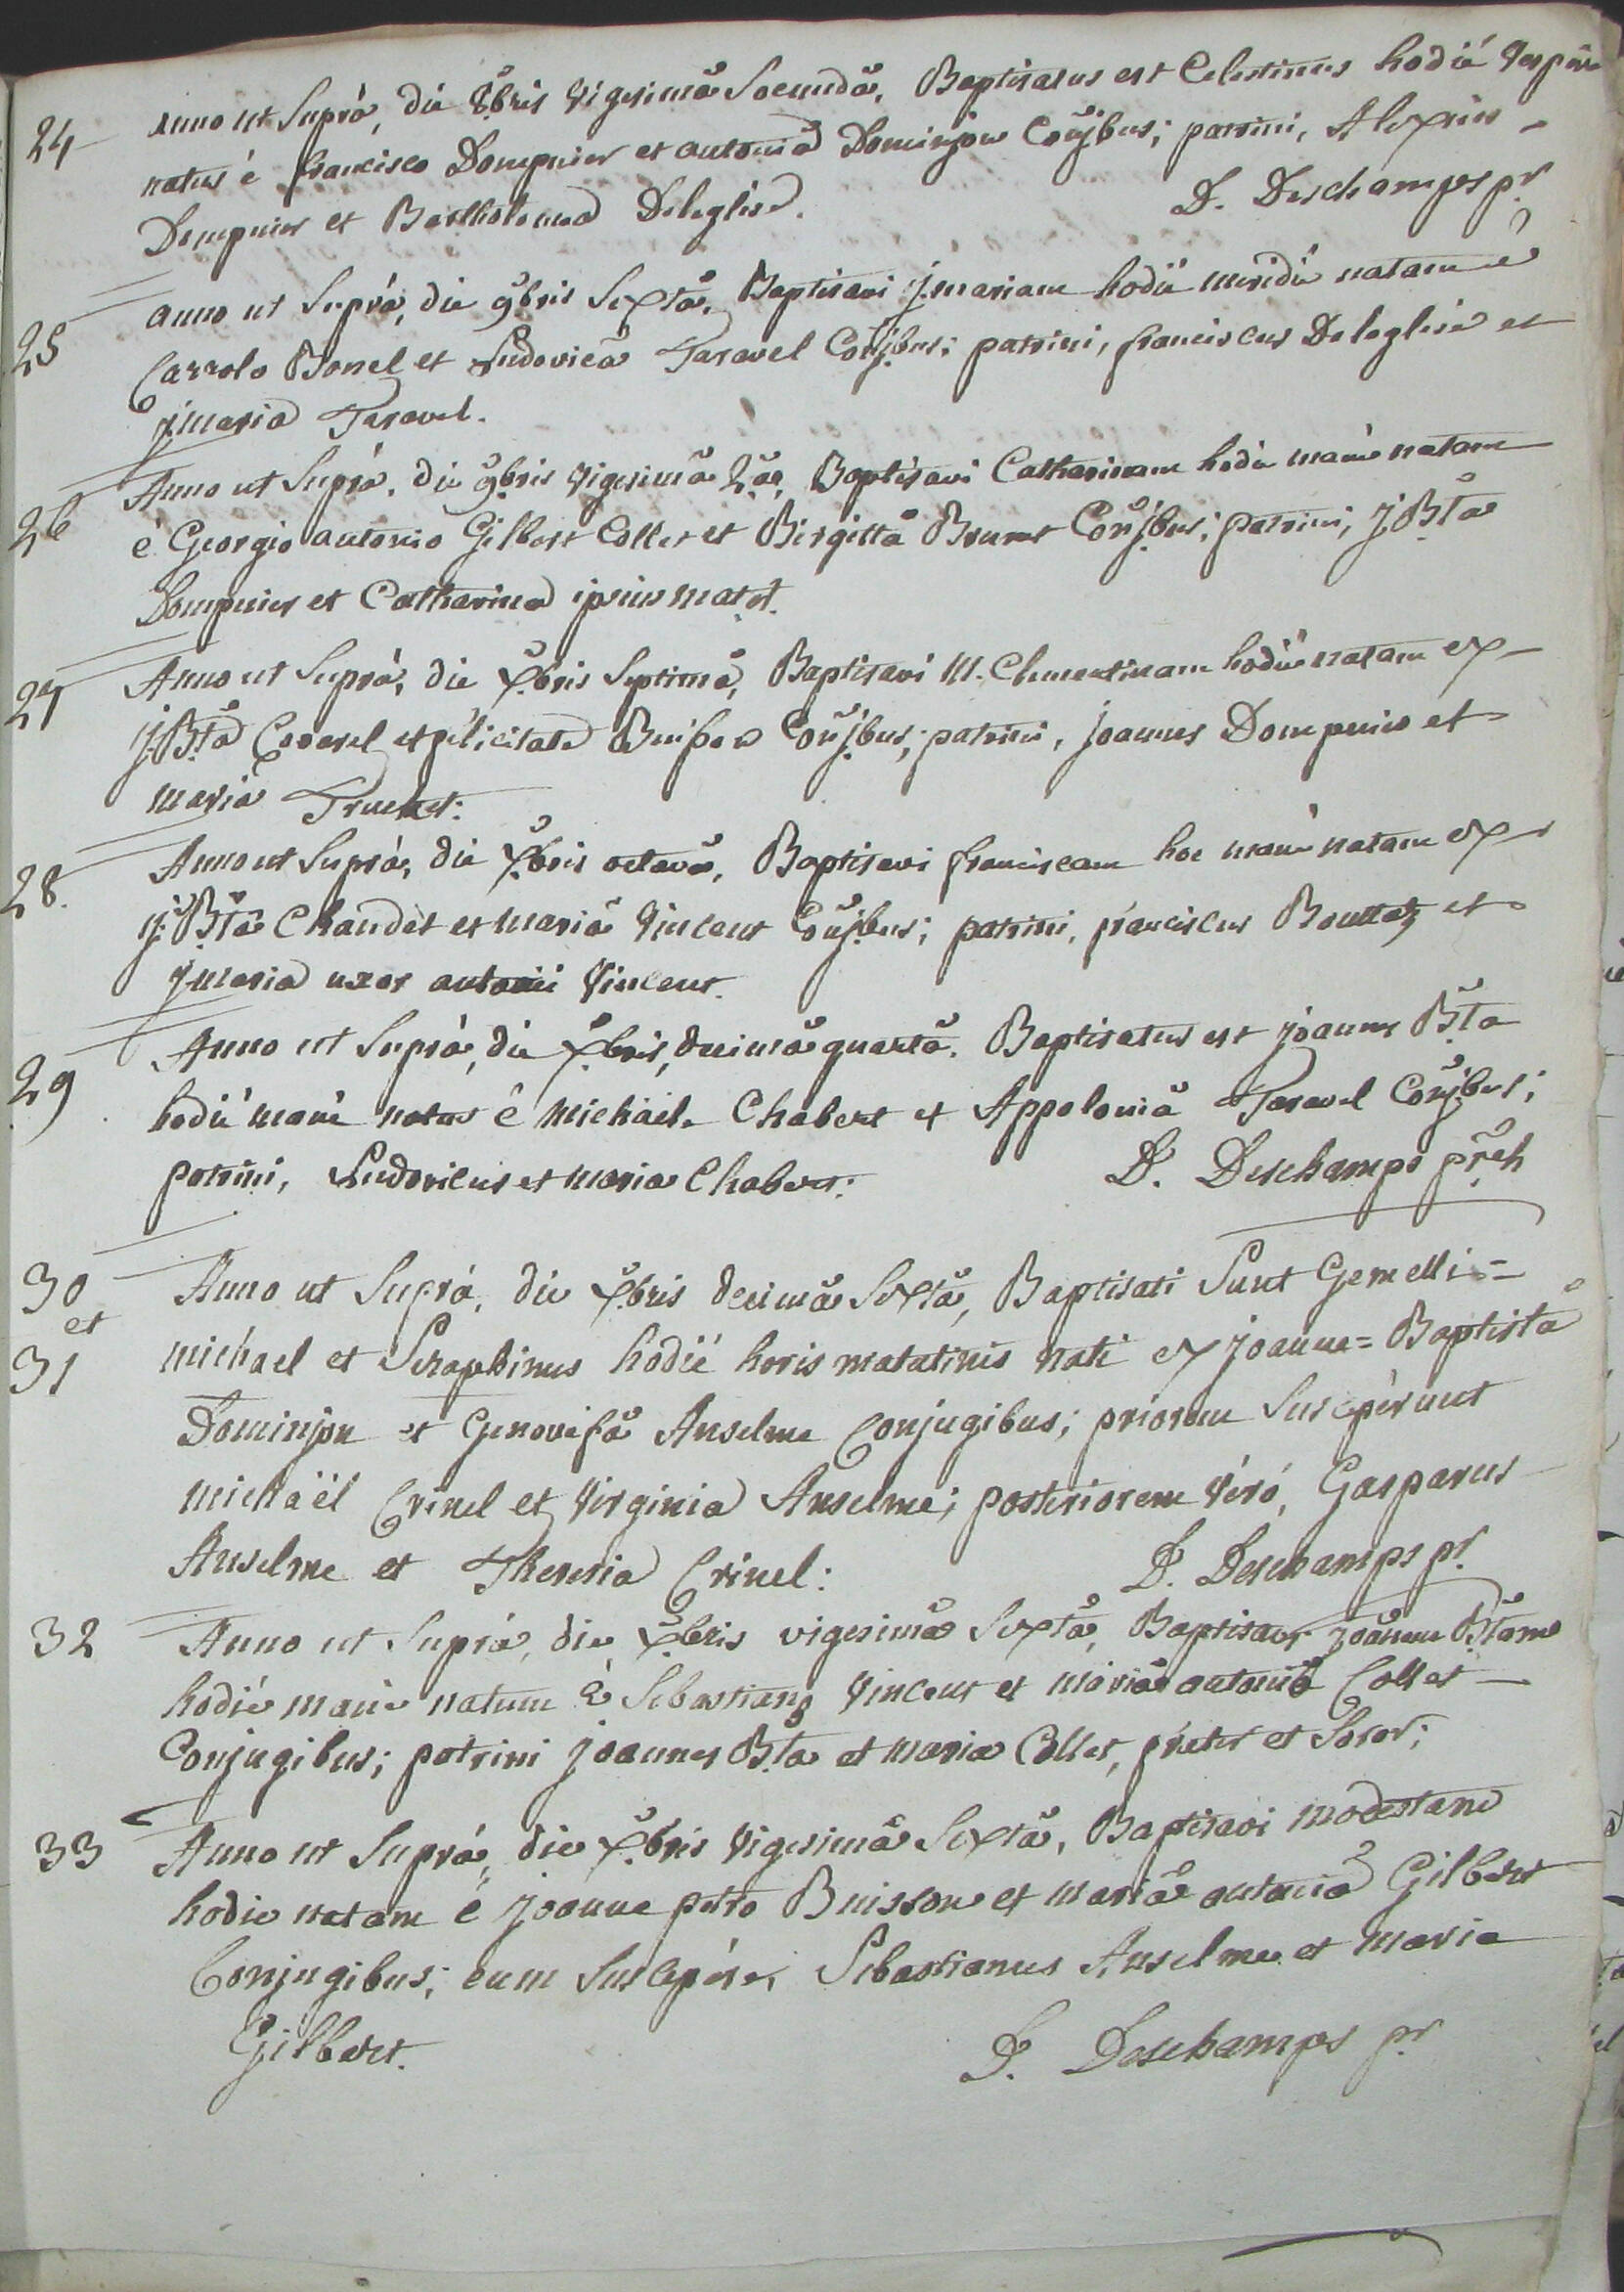 24 Anno ut Suprà, die 8bris vigesimâ Secundâ, Baptisatus est Celestinus hodiè Vesperè
natus è francisco Dompnier et antoniâ Dominjon Coñjbus; patrini, Alexius
Dompnier et Bartholomea Deleglise.
D. Deschamps pr
25 anno ut Suprà, die 9bris Sextâ, Baptisavi j.mariam hodiè meridiè natam è
Carrolo Bonel et Ludovicâ Taravel Coñjbus; patrini, franciscus Deleglise et
j.maria Taravel.
26 Anno ut Suprà, die 9bris vigesimâ 2âe, Baptisavi Catharinam hodiè manè natam
è Georgio antonio Gilbert Collet et Birgittâ Brunet Coñjbus; patrini, j Bta
Dompnier et Catharina ipsius mat.
27 Anno ut Suprà, die Xbris Septimâ, Baptisavi M. Clementinam hodiè natam ex
j.Btâ et félicitate Buisson Coñjbus; patrini, joannes Dompnier et
maria Truchet.
28. Anno ut Suprà, die Xbris octavâ, Baptisavi franciscam hoc manè natam ex
j.Btâ Chaudet et mariâ Vincent Coñjbus; patrini, franciscus Bouttaz et
j maria uxor antonii Vincent.
29 Anno ut Suprà, die Xbris, decimâ quartâ. Baptisatus est joannes Bta
hodiè manè natus è michäele Chabert et Appoloniâ Taravel Coñjbus;
patrini, Ludovicus et maria Chabert.
D. Deschamps prêh
30 Anno ut Suprà, die Xbris decimâ Sextâ, Baptisati Sunt Gemelli=
et
31 michael et Seraphinus hodiè horis matatinis nati ex joanne=Baptistâ
Dominjon et Genovefâ Anselme Conjugibus; priorem Suscepèrunt
michaël Crinel et Virginia Anselme; posteriorem Vérò, Gasparus
Anselme et Theresia Crinel:
D. Deschamps pr
32 Anno ut Suprà, die Xbris vigesimâ Sextâ, Baptisavi joannem Btam
hodiè manè natum è Sebastiano Vincent et mariâ antoniâ Collet
Conjugibus; patrini joannes Bta et maria Collet, frater et Soror;
33 Anno ut Suprà, die Xbris Vigesimâ Sextâ, Baptisavi modestam
hodie natam è joanne petro Buisson et mariâ antoniâ Gilbert
Conjugibus; eam Suscepére, Sebastianus Anselme et maria
Gilbert.
D. Deschamps pr